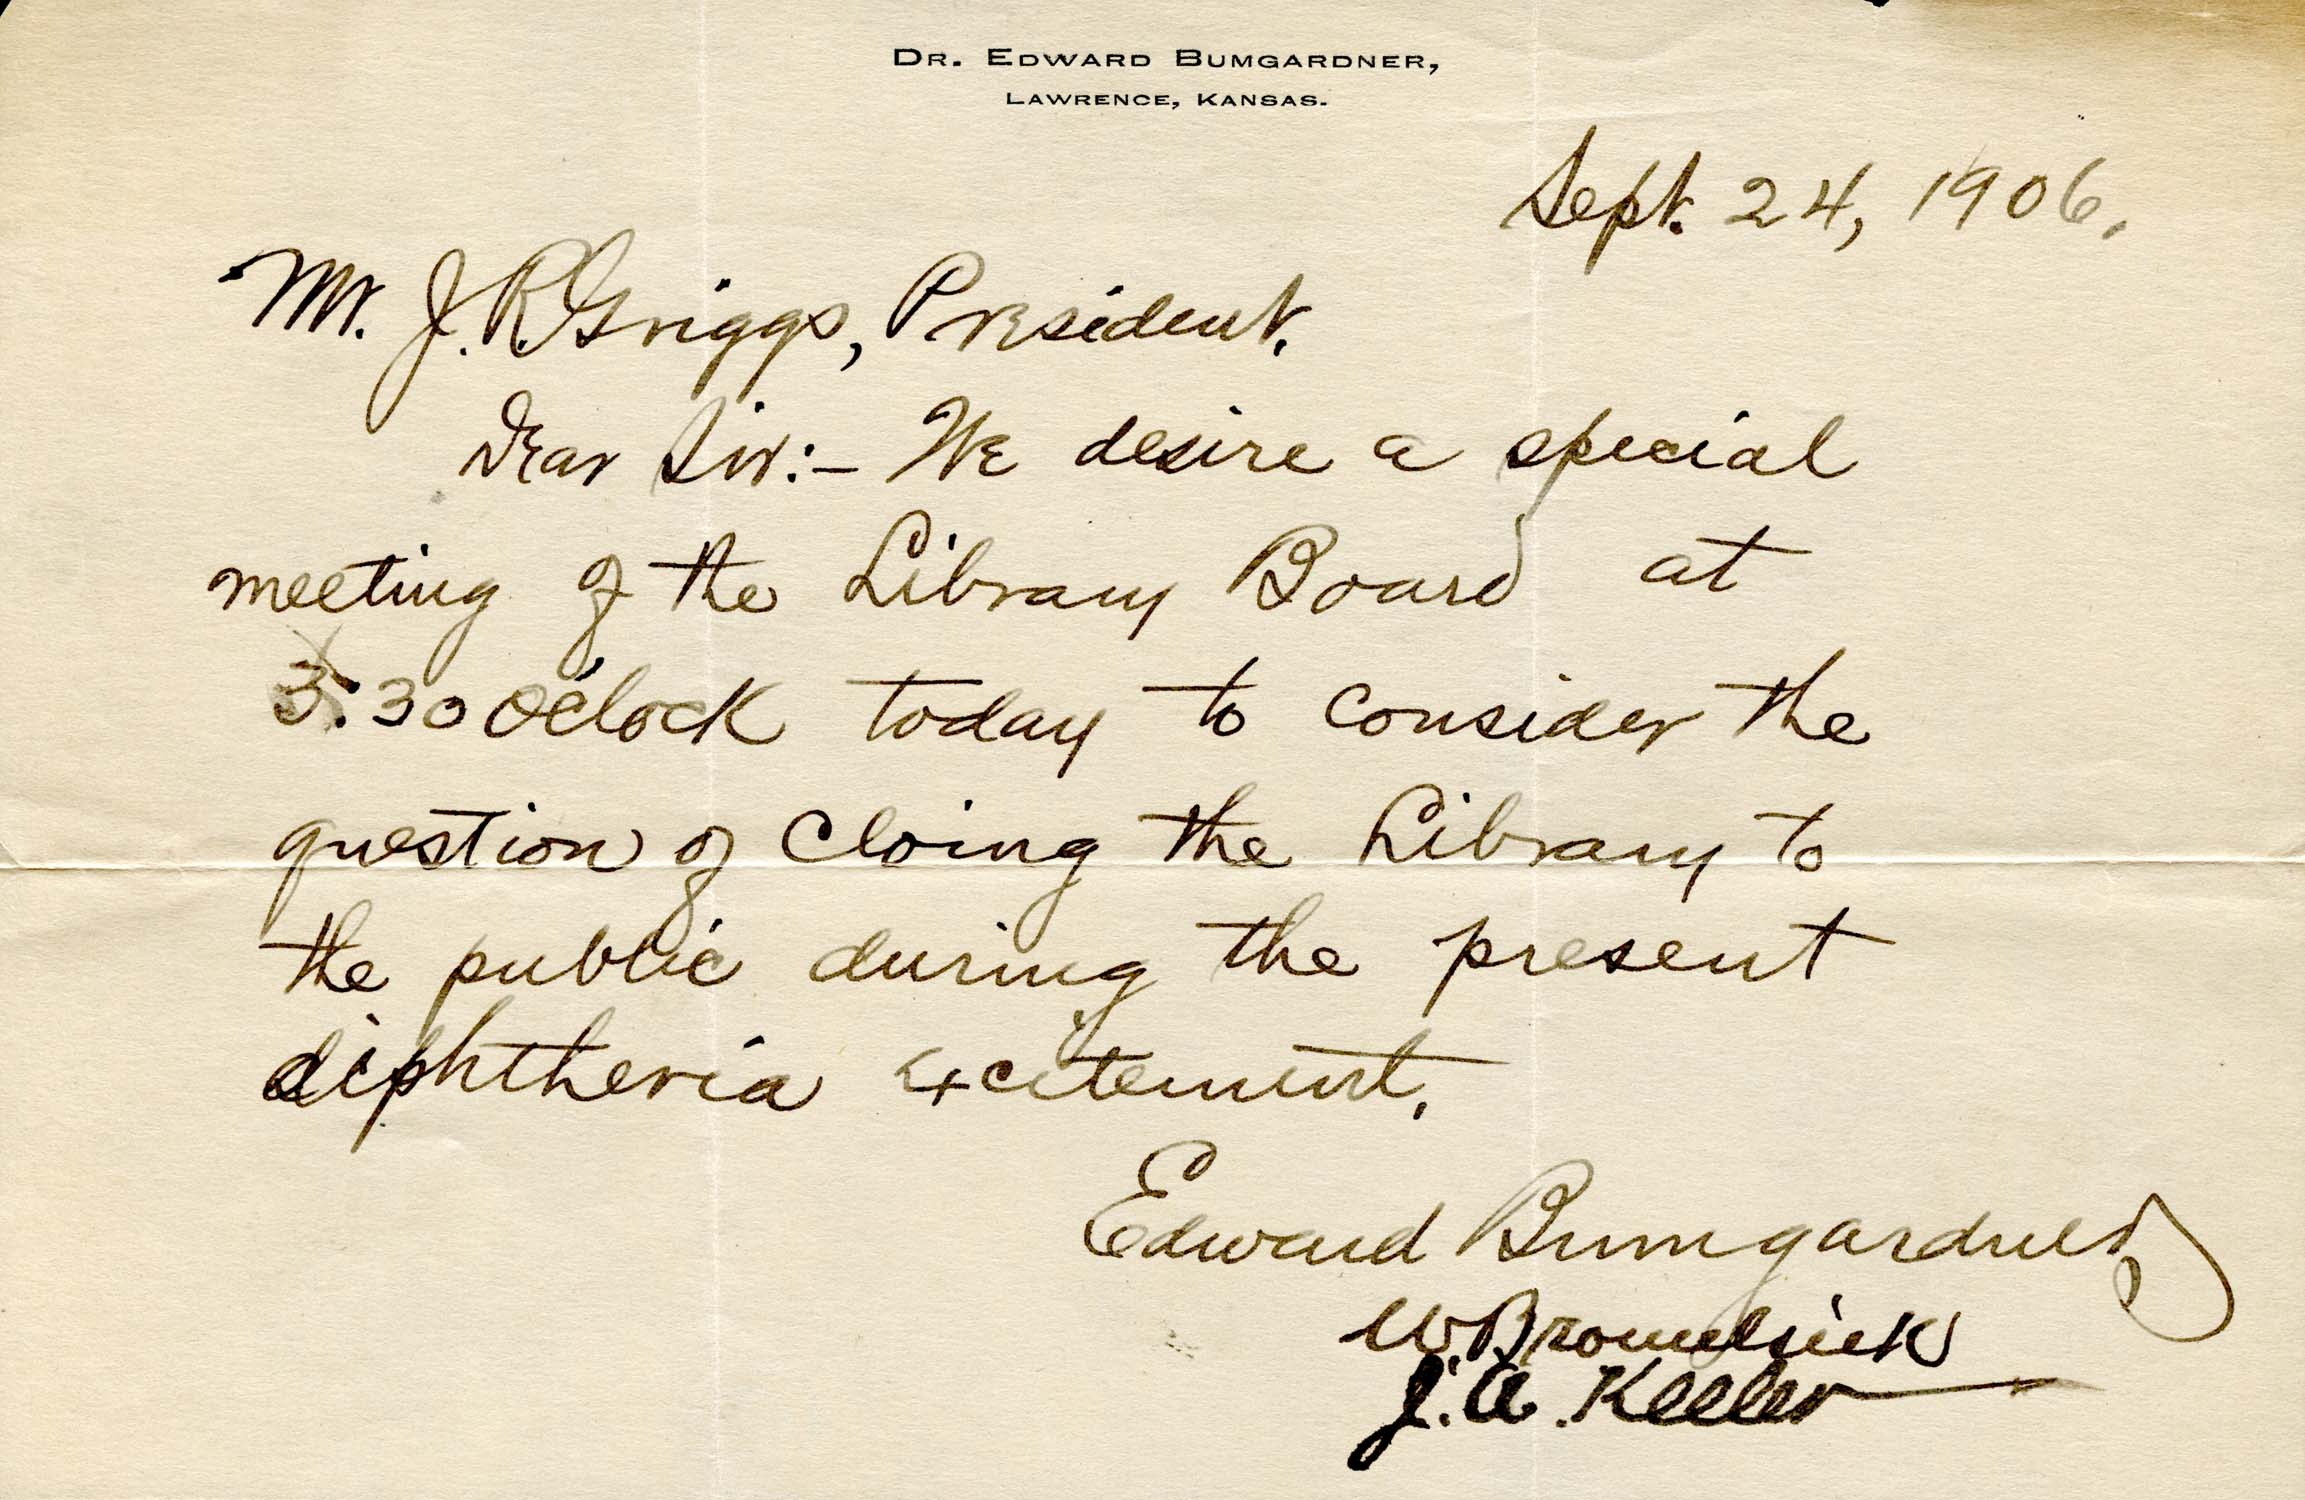 DR. EDWARD BUMGARDNER,
LAWRENCE, KANSAS.
Sept. 24, 1906.
Mr. J. R. Griggs, President.
Dear Sir:– We desire a special
meeting of the Library Board at
3:30 O'clock today to consider the
question of Cloing the Library to
the public during the present
diphtheria excitement.
Edward Bumgardner,
W Bromelsick
J. A. Keeler